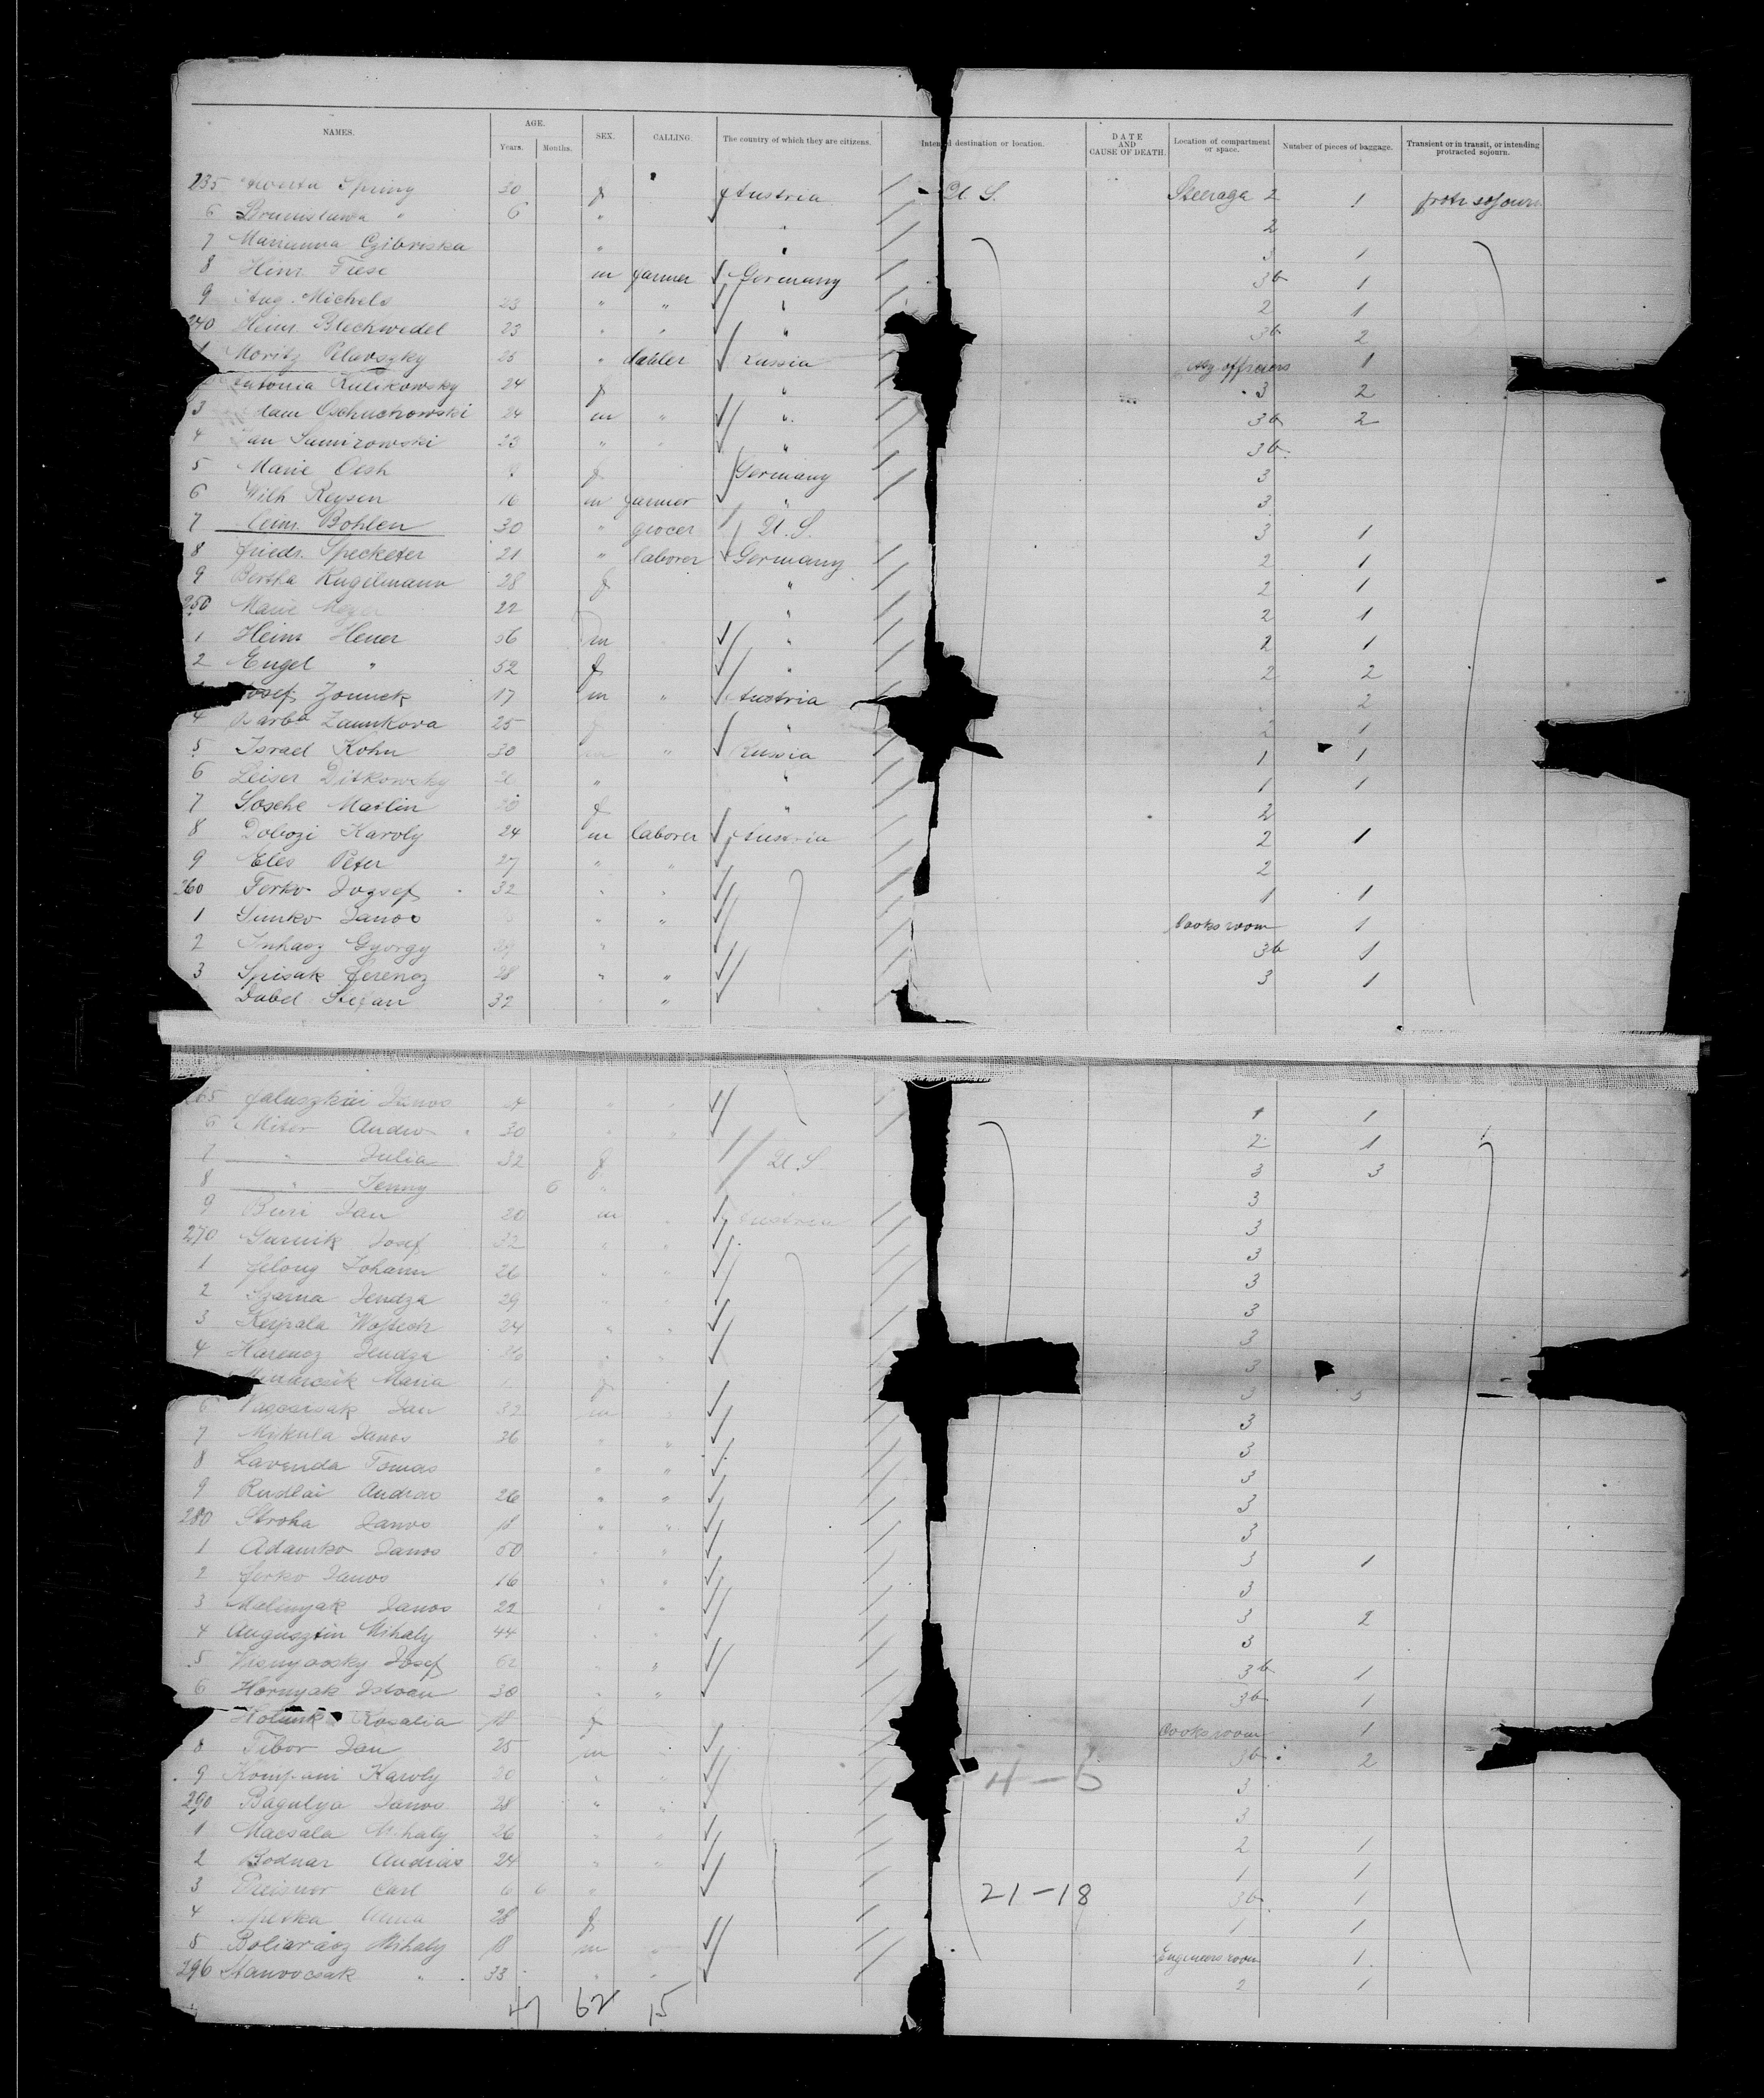 NAMES. AGE. SEX. CALLING. The country of which they are citizens. Intend d destination or location. DATE AND CAUSE OF DEATH. Location of compartment or space. Number of pieces of baggage. Transient or in transit, or intending protracted sojourn.
Years. Months.
235 Spring 30 f Austria U S. Steerage 2 1 protr sojourn
6 Bronislawa " 6 " " 2
7 Marianna " " 3 1
8 Hinr. Fiese m farmer Germany 3b 1
9 Aug. Michels 23 " " " 2 1
240 Heinr. Bleckwedel 23 " " " 3b 2
1 Moritz 25 " Russia officiers 1
Antonia Kulikowsky 24 f " 3 2
3 dam 24 m " " 3b 2
4 23 " " " 3b
5 Marie Oesh f Germany 3
6 Wilh Reysen 16 m farmer " 3
7 Heinr. Bohlen 30 " grocer U. S. 3 1
8 Friedr. Specketer 21 " laborer Germany 2 1
9 Bertha Kugelmann 28 f " 2 1
250 Marie Meyer 22 " 2 1
1 Heinr Heuer 56 m " 2 1
2 Engel " 52 f " 2 2
Josef 17 m " Austria 2
4 Barba 25 f " 2 1
5 Israel Kohn 30 " Russia 1 1
6 Leiser Ditkowsky " " 1 1
7 Sosche Mailin 20 f " 2
8 Dobozi Karoly 24 m laborer Austria 2 1
9 Eles Peter 27 " " 2
260 Ferko Jozsef 32 " " 1 1
1 Simko Janos " " Cooks room 1
2 Juhasz Gyorgy 29 " 3b 1
3 Spisak Ferencz 28 " " 3 1
Dubel Stefan 32 "
265 Janos 24 " " 1 1
6 Miter Andro 30 " " 2 1
7 " Julia 32 f U.S 3 3
8 " Jenny 6 " 3
9 Buri Jan 20 m " Austria 3
270 Gurnik Josef 32 " " 3
1 Johann 26 " " 3
2 Szarna Jendza 29 " " 3
3 Wojtech 24 " " 3
4 Harencz Jendza 36 " " 3
Maria f 3 5
6 Jan 32 m " 3
7 Mikula Janos 36 " " 3
8 Lavenda Tomas " " 3
9 Rudlai Andras 26 " " 3
280 Stroha Janos 18 " " 3
1 Adamko Janos 50 " " 3 1
2 Ferko Janos 16 " " 3
3 Malinyak Janos 22 " " 3 2
4 Augusztin Mihaly 44 " " 3
5 Visnyovsky Josef 62 " " 3b 1
6 Hornyak Istvan 30 " " 3b 1
Rosalia 18 f Cooks room 1
8 Tibor Jan 25 m " 3b 2
9 Kompani Karoly 20 " " 4-6 3
290 Bagulya Janos 28 " " 3
1 Macsala Mihaly 26 " " 2 1
2 Bodnar Andras 24 " " 1 1
3 Carl 6 6 " 21-18 3b 1
4 Anna 28 f 1 1
5 Mihaly 18 m " Engineers room 1
296 Stanovcsak " 33 " " 2 1
47 62 15